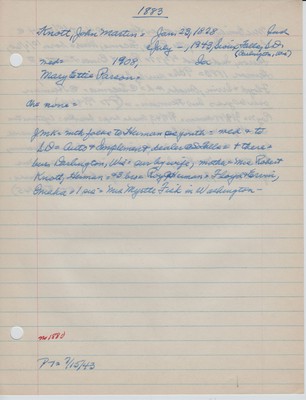 1883
Knott, John Martin = Jan. 23, 1828 Ind
July -, 1943, Sioux Falls, S.D.
(Darlington, Wis)
med = 1908, Ia
Mary Ettie Parson =
Chr none =
JMK = with folks to Herman as youth = med & to
SD = Auto & Implement dealer SD Falls = & there =
bur Darlington, Wis = sur by wife, mother = Mrs Robert
Knott, Herman = & 3 bros Roy Herman = Floyd &
& 1 sis = Mrs Myrtle in Washington -
no 1880
P-T = 7/15/43